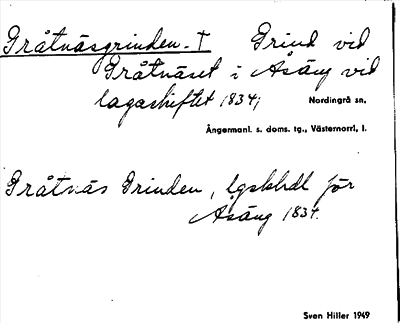 Gråtnäsgrinden - † Grind vid
Gråtnäset i Asäng vid
lagaskiftet 1834;
Nordingrå sn,
Ångermanl. s. doms. tg., Västernorrl. l.
Gråtnäs Grinden, lgskhdl för
Asäng 1834.
Sven Hiller 1949